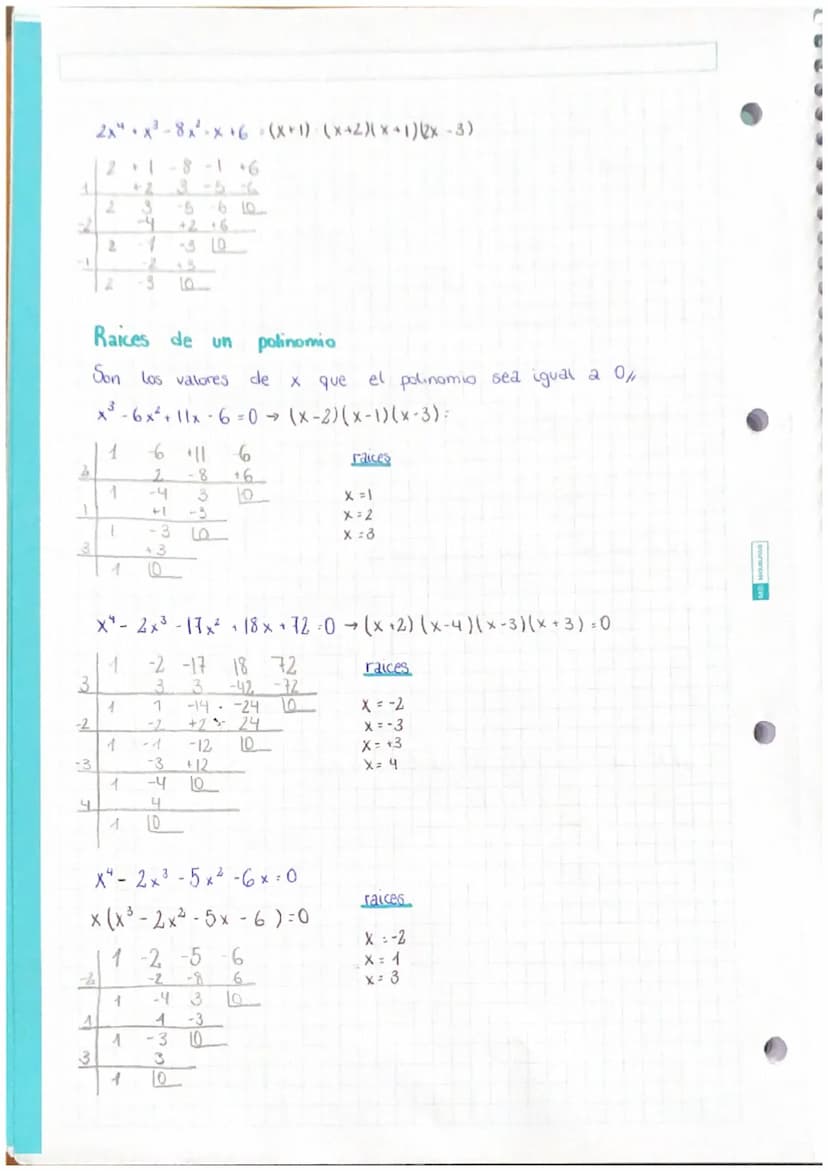 2x⁴ + x³ - 8x² - x + 6 = (x+1) · (x+2)(x+1)(2x - 3)
2 + 1 - 8 - 1 + 6
1 +2 3 -5 -6
2 3 -5 -6 |0
-2 -4 +2 +6
2 -1 -3 |0
-1 -2 +3
2 -3 |0
Raices de un polinomio
Son los valores de x que el polinomio sea igual a 0//
x³ - 6x² + 11x - 6 = 0 → (x-2)(x-1)(x-3):
1 -6 +11 -6
2 -8 +6
1 -4 3 |0
1 +1 -3
1 -3 |0
3 +3
1 |0
raices
x = 1
x = 2
x = 3
x⁴ - 2x³ - 17x² + 18x + 72 = 0 → (x+2)(x-4)(x-3)(x+3) = 0
1 -2 -17 18 72
3 3 3 -42 -72
1 1 -14 -24 |0
-2 -2 +2 24
1 -1 -12 |0
-3 -3 +12
1 -4 |0
4 4
1 |0
raices
x = -2
x = -3
x = +3
x = 4
x⁴ - 2x³ - 5x² - 6x = 0
x(x³ - 2x² - 5x - 6) = 0
1 -2 -5 6
-2 -2 -8 6
1 -4 3 |0
1 1 -3
1 -3 |0
3 3
1 |0
raices
x = -2
x = 1
x = 3